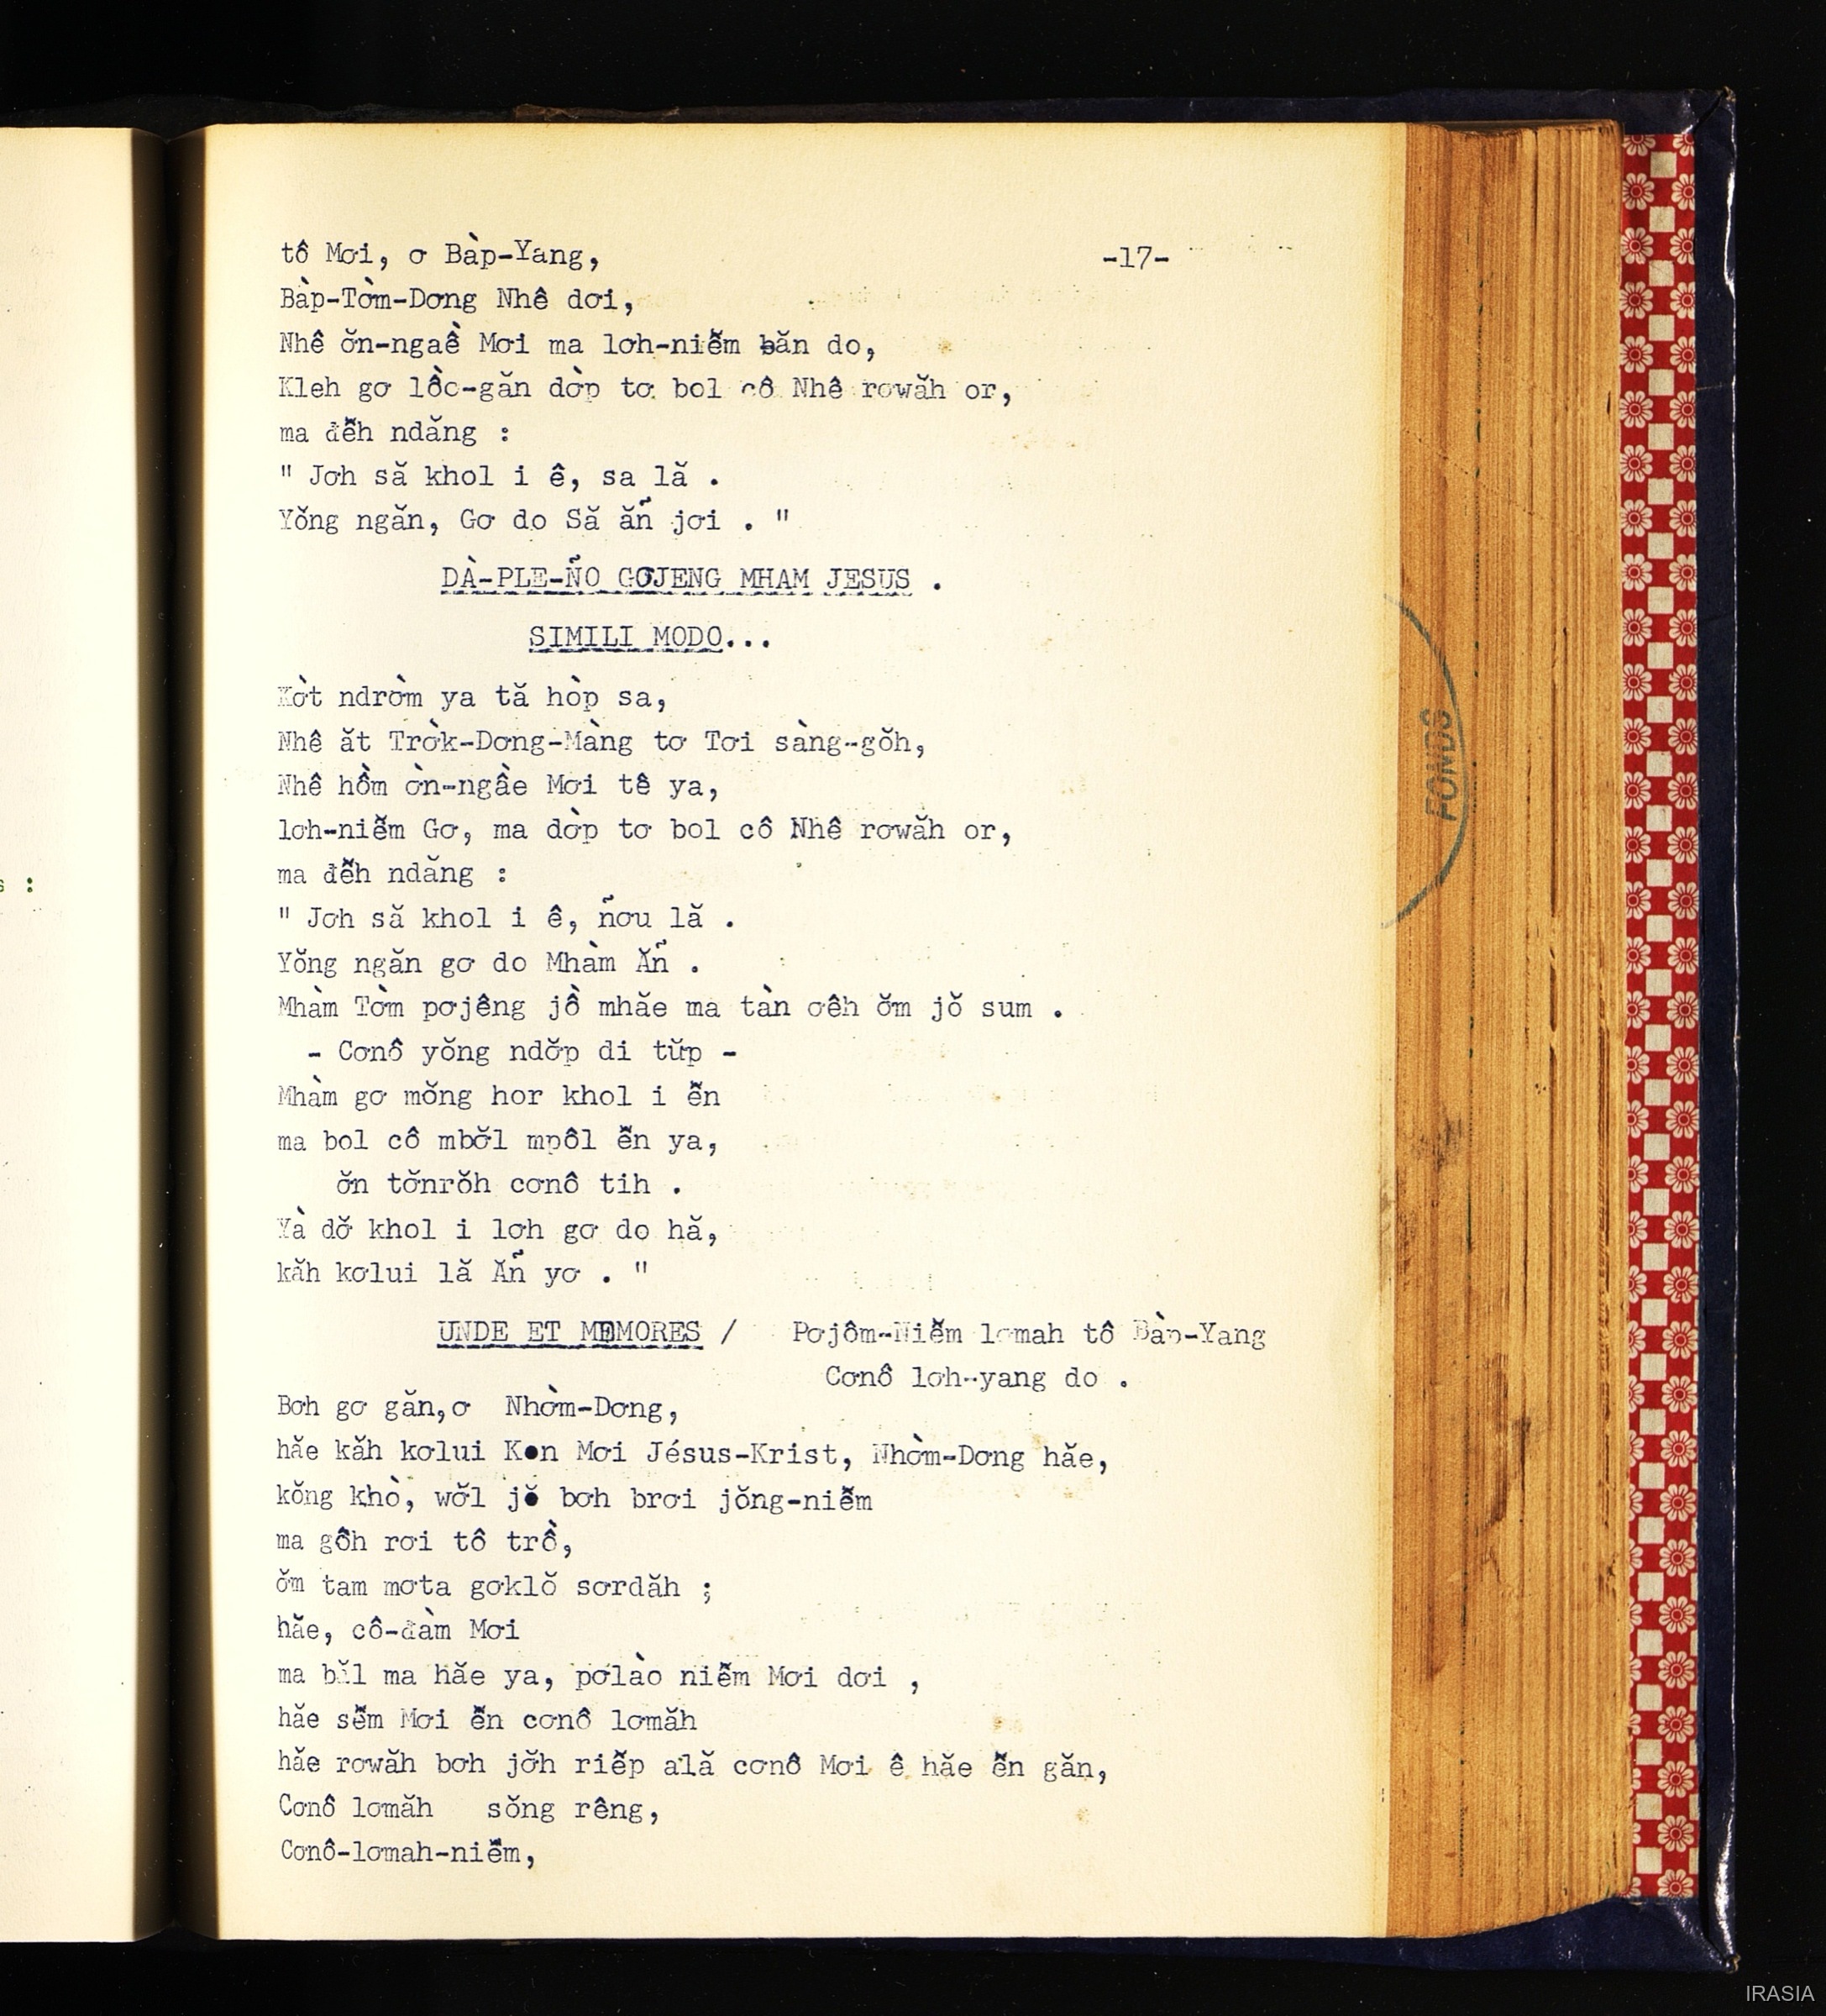 tô Mơi, ơ Bàp-Yang,
-17-
Bàp-Tờm-Dơng Nhê dơi,
Nhê ơ̆n-ngaê̆̀ Mơi ma lơh-niê̆m băn do,
Kleh gơ lồc-găn dờp tơ bol cô Nhê rơwăh or,
ma đê̆h ndăng :
" Jơh să khol i ê, sa lă .
Yŏng ngăn, Gơ do Să ăñ jơi . "
DÀ-PLE-ÑO GƠJENG MHAM JESUS .
SIMILI MODO...
Kờt ndrờm ya tă hòp sa,
Nhê ăt Trờk-Dơng-Màng tơ Tơi sàng-gŏh,
Nhê hồm ờn-ngầe Mơi tê ya,
lơh-niê̆m Gơ, ma dờp tơ bol cô Nhê rơwăh or,
ma đê̆h ndăng :
" Jơh să khol i ê, ñơu lă .
Yŏng ngăn gơ do Mhàm Ăñ .
Mhàm Tờm pơjêng jồ mhăe ma tàn ơêh ơ̆m jŏ sum .
- Cơnô yŏng ndơ̆p di tŭp -
Mhàm gơ mŏng hor khol i ê̆n
ma bol cô mbơ̆l mpôl ê̆n ya,
ơ̆n tơ̆nrŏh cơnô tih .
Yà dơ̆ khol i lơh gơ do hă,
kăh kơlui lă Ăñ yơ . "
UNDE ET MEMORES / Pơjôm-Niê̆m lơmah tô Bàp-Yang
Cơnô lơh-yang do .
Bơh gơ găn,ơ Nhờm-Dơng,
hăe kăh kơlui Kon Mơi Jésus-Krist, Nhờm-Dơng hăe,
kŏng khò, wơ̆l jŏ bơh brơi jŏng-niê̆m
ma gôh rơi tô trồ,
ơ̆m tam mơta gơklŏ sơrdăh ;
hăe, cô-đàm Mơi
ma băl ma hăe ya, pơlào niê̆m Mơi dơi ,
hăe sê̆m Mơi ê̆n cơnô lơmăh
hăe rơwăh bơh jơ̆h riê̆p ală cơnô Mơi ê hăe ê̆n găn,
Cơnô lơmăh sŏng rêng,
Cơnô-lơmah-niê̆m,
FONDS
IRASIA